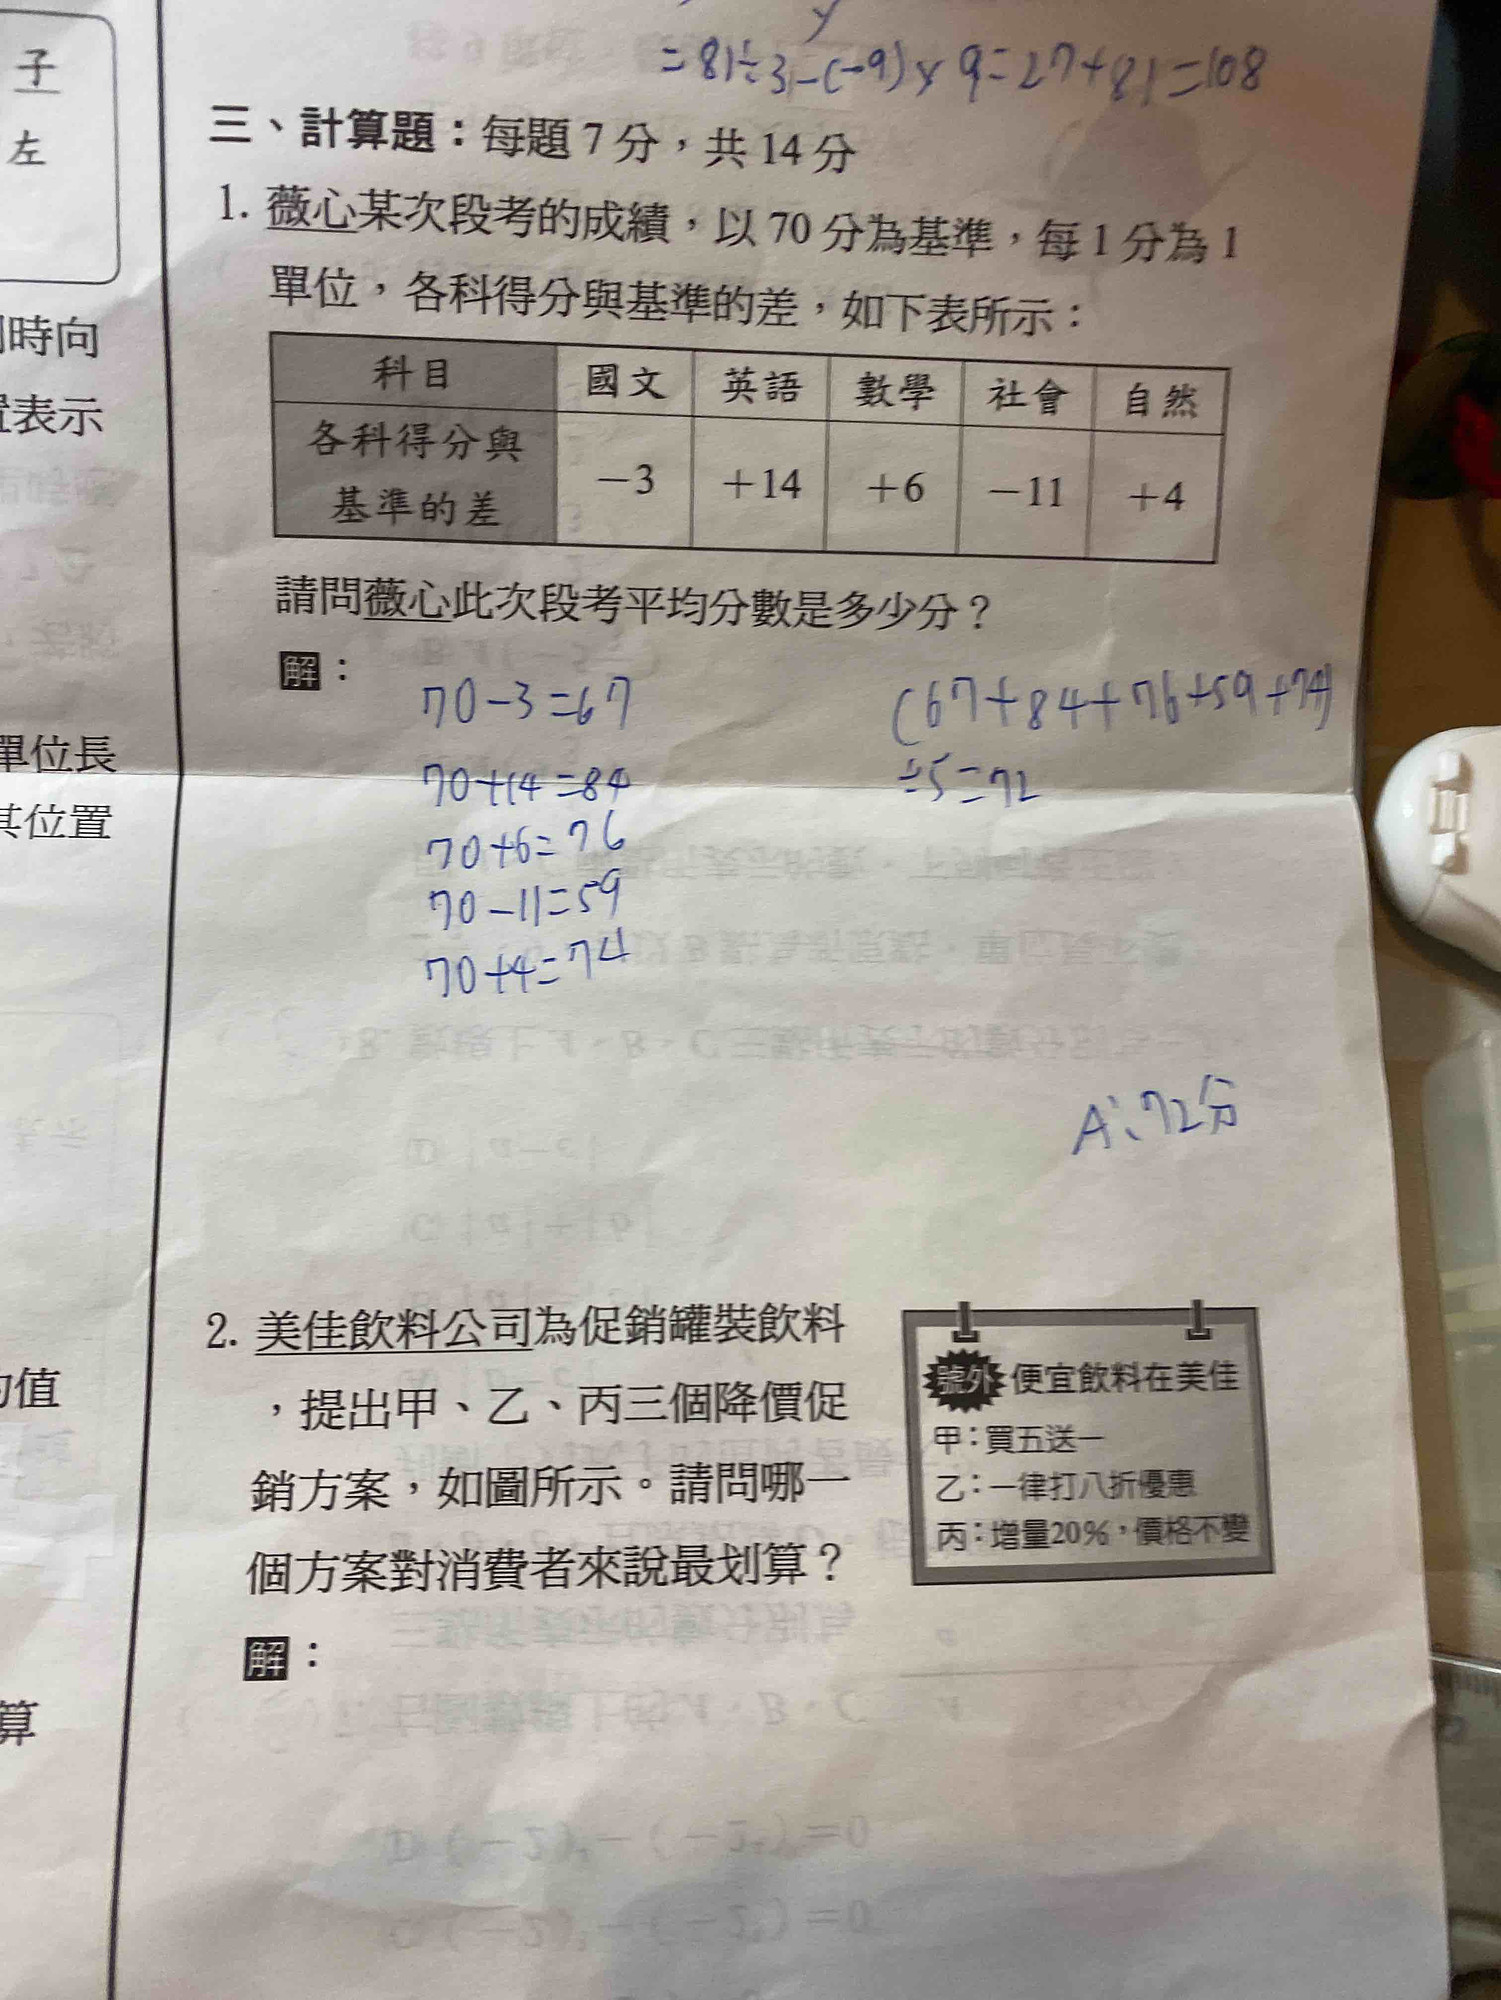 =81÷3-(-9)×9=27+81=108
三、計算題：每題7分，共14分
1. 薇心某次段考的成績，以70分為基準，每1分為1
單位，各科得分與基準的差，如下表所示：
科目 國文 英語 數學 社會 自然
各科得分與
基準的差 －3 ＋14 ＋6 －11 ＋4
請問薇心此次段考平均分數是多少分？
解：
70-3=67
70+14=84
70+6=76
70-11=59
70+4=74
(67+84+76+59+74)
÷5=72
A:72分
2. 美佳飲料公司為促銷罐裝飲料
，提出甲、乙、丙三個降價促
銷方案，如圖所示。請問哪一
個方案對消費者來說最划算？
號外 便宜飲料在美佳
甲：買五送一
乙：一律打八折優惠
丙：增量20%，價格不變
解：
子
左
時向
表示
單位長
其位置
的值
算